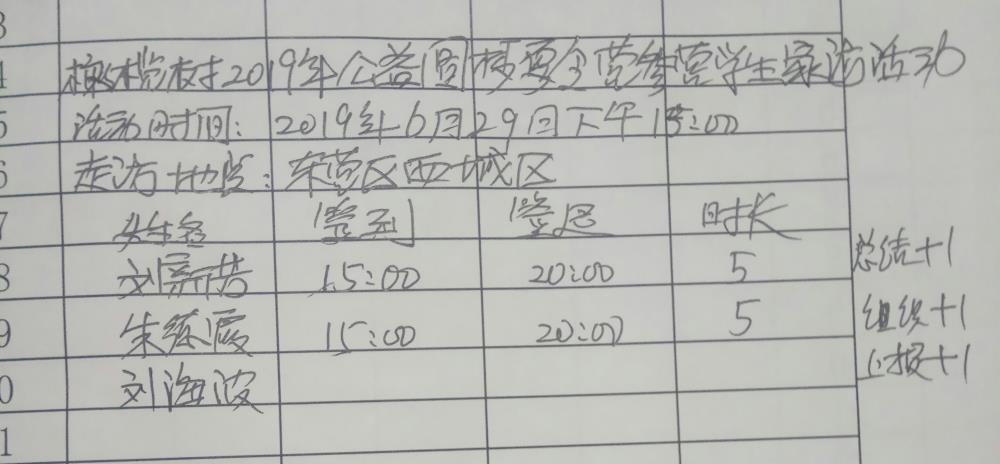 3
4 橄榄树2019年公益圆梦夏令营学生家访活动
5 活动时间：2019年6月29日下午15:00
6 走访地点：东营区西城区
7 姓名 签到 签退 时长
8 刘新 15:00 20:00 5 总结+1
9 朱霞 15:00 20:00 5 组织+1
0 刘海波 上报+1
1